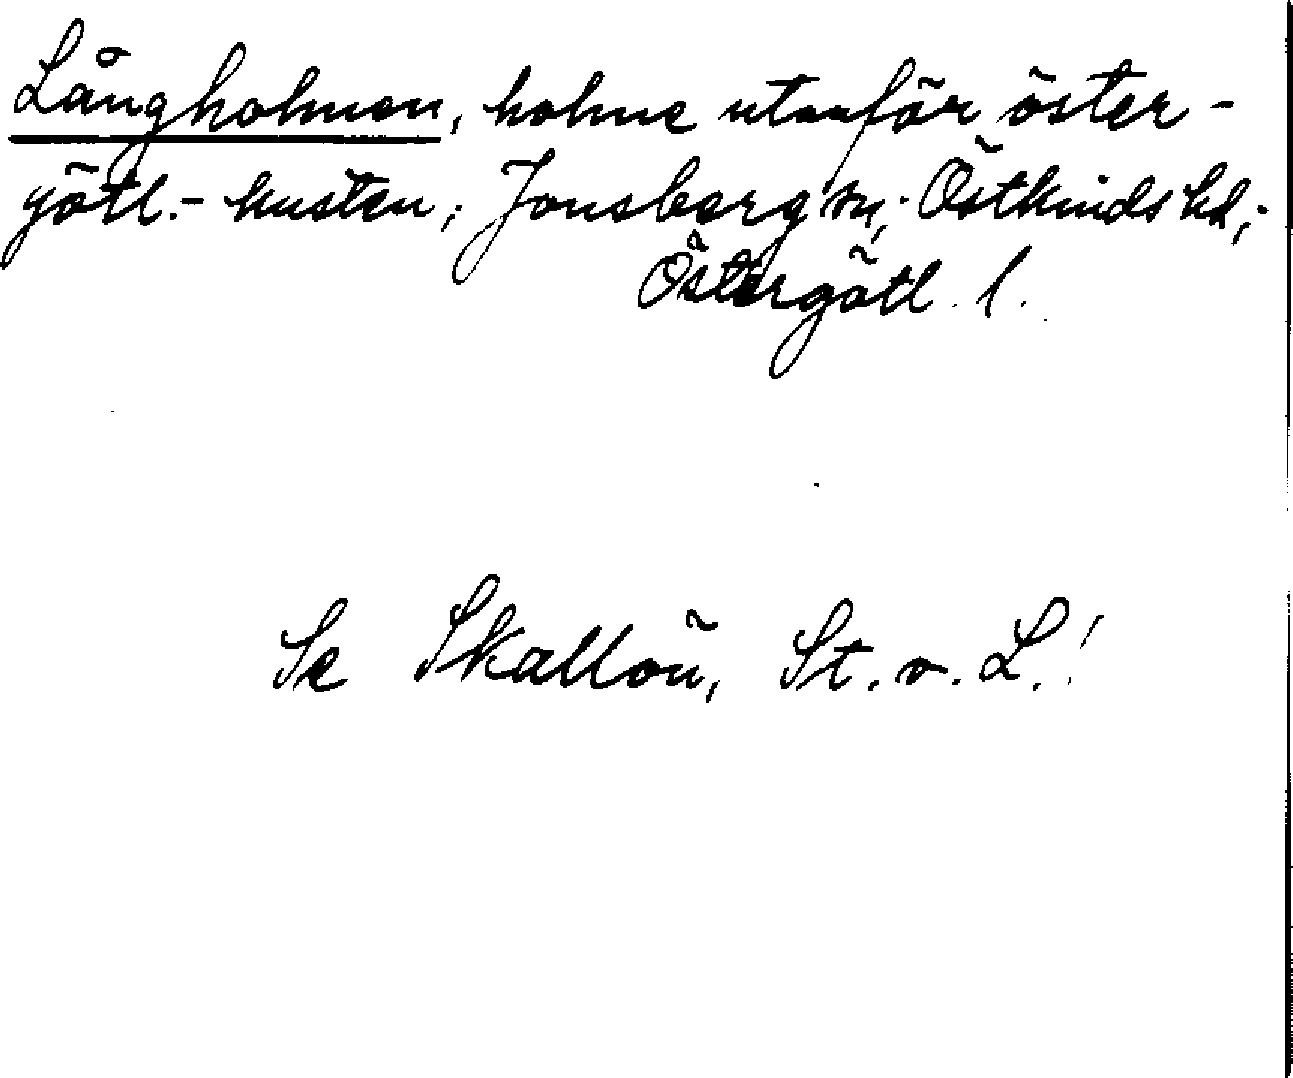 Långholmen, holme utanför öster-
götl.-kusten; Jonsberg sn; Östkinds hd;
Östergötl. l.
Se Skallön, St. o. L.!